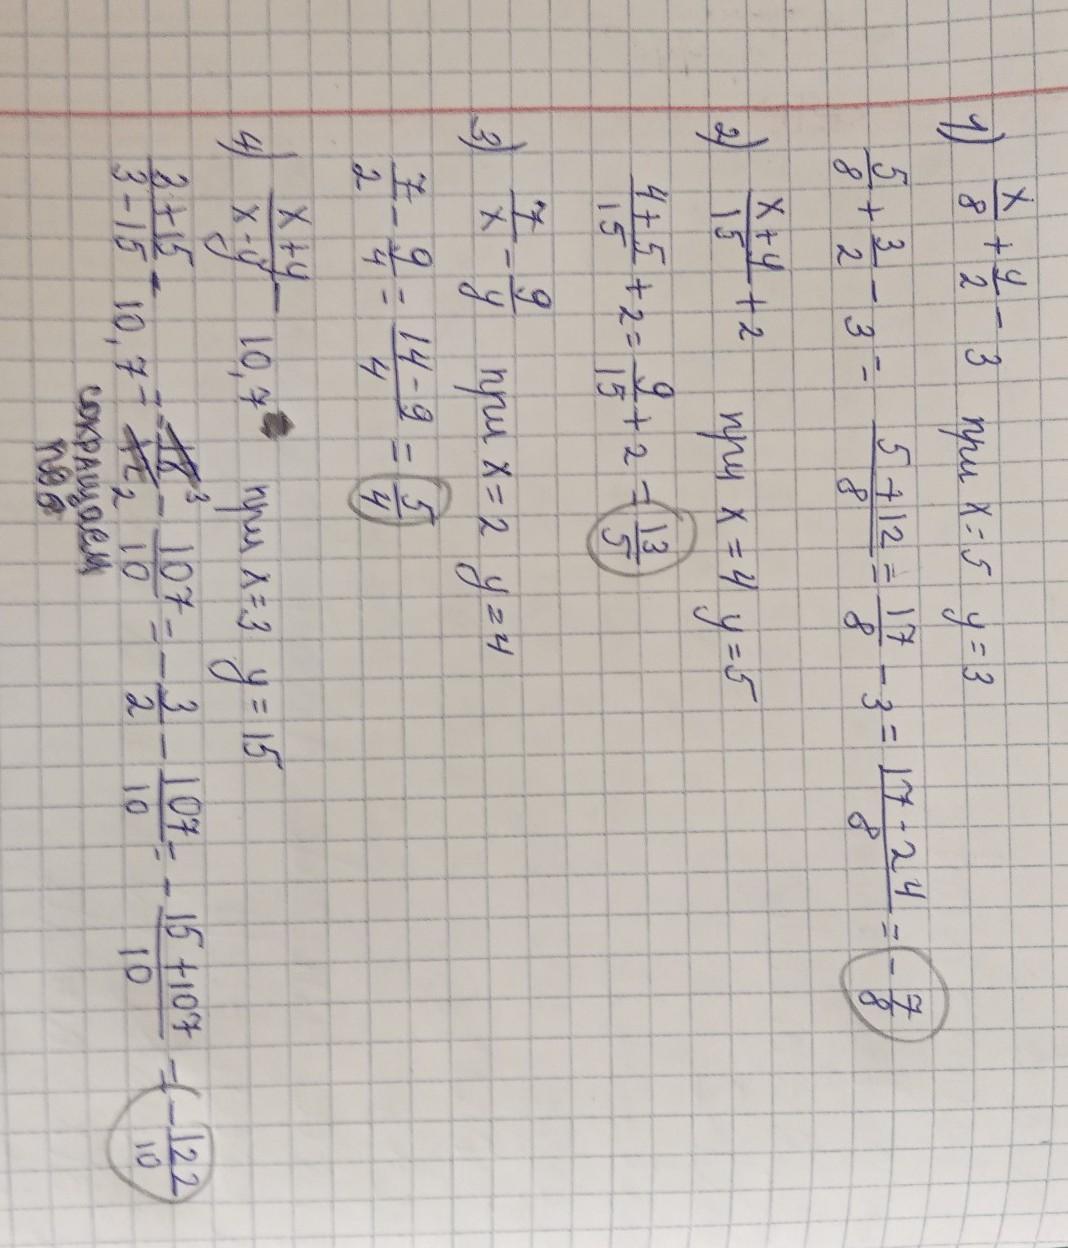 1) x/8 + y/2 - 3 при x = 5 y = 3
5/8 + 3/2 - 3 = (5 + 12)/8 = 17/8 - 3 = (17 - 24)/8 = -7/8
2) (x+y)/15 + 2 при x = 4 y = 5
(4+5)/15 + 2 = 9/15 + 2 = 13/5
3) 7/x - 9/y при x = 2 y = 4
7/2 - 9/4 = (14 - 9)/4 = 5/4
4) (x+y)/(x-y) - 10,7 при x = 3 y = 15
(3+15)/(3-15) - 10,7 = - 3/2 - 107/10 = - 3/2 - 107/10 = - (15 + 107)/10 = - 122/10
сокращаем